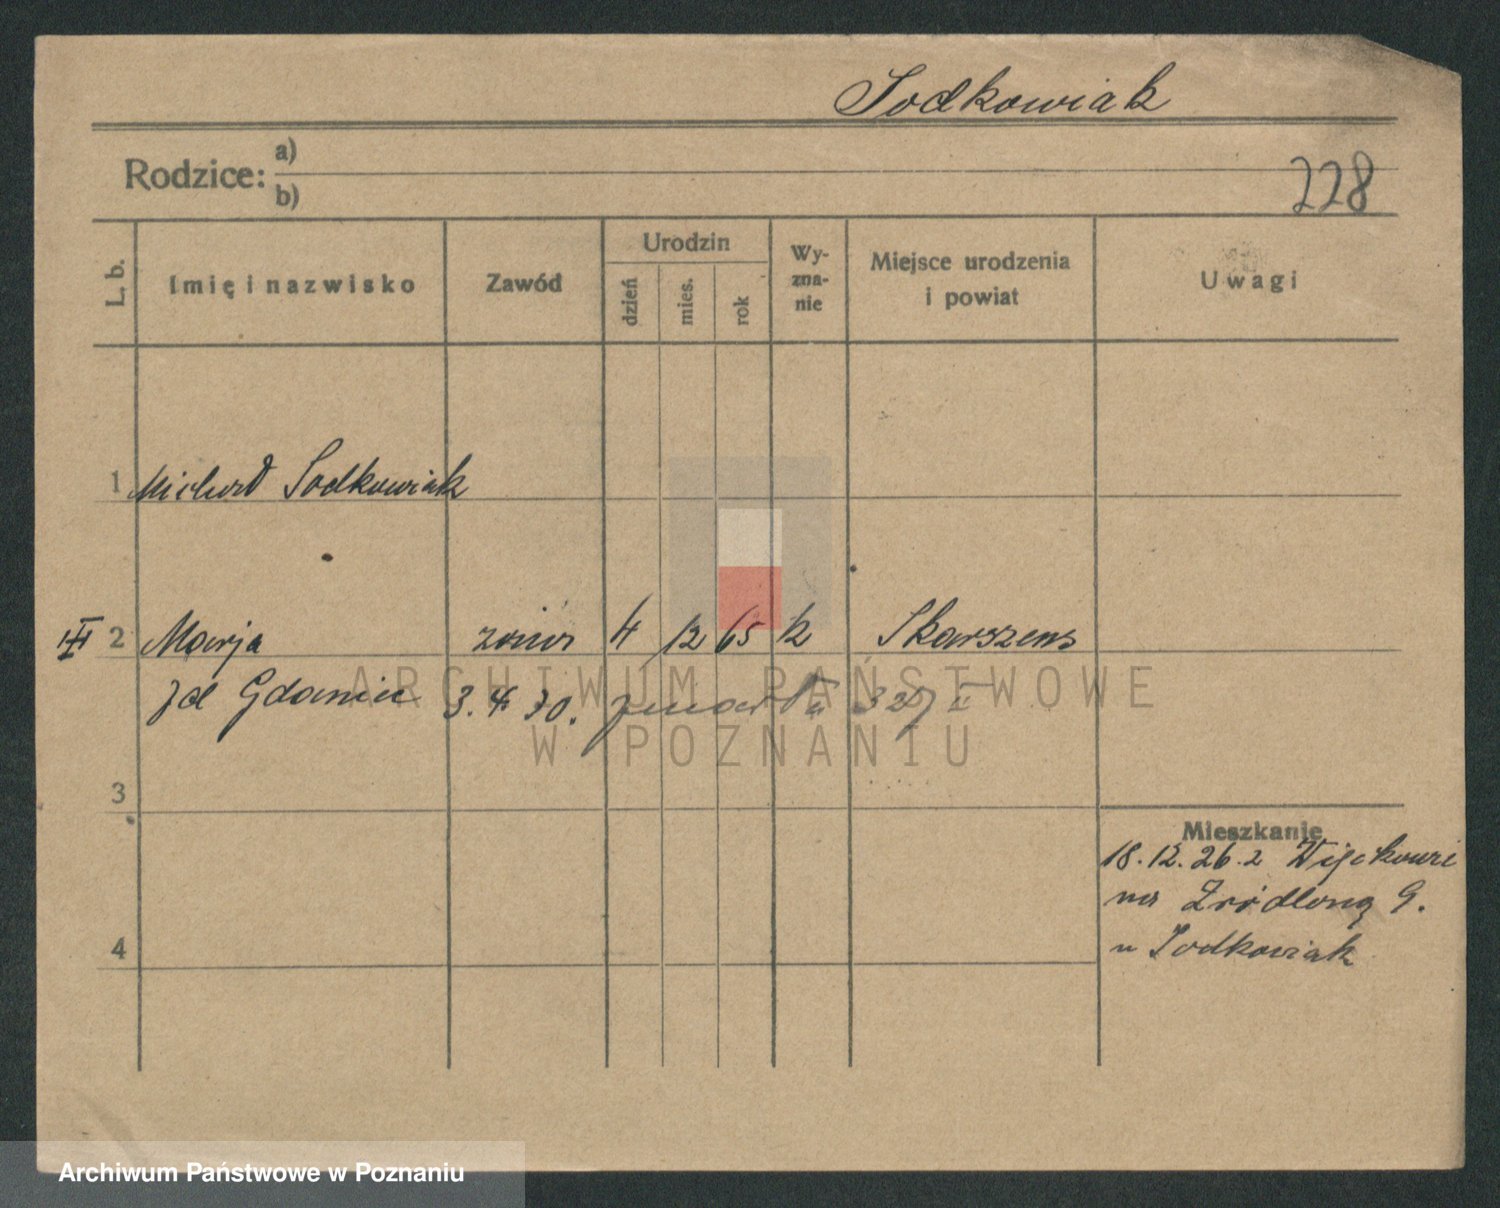 Sodkowiak
Rodzice: a)
b)
228
L. b.
Imię i nazwisko
Zawód
Urodzin
dzień
mies.
rok
Wy-
zna-
nie
Miejsce urodzenia
i powiat
Uwagi
1 Michał Sodkowiak
2 Marja żona 4 12 65 k
3.4 30. zmarła
3
4
Mieszkanie
18.12.26. z
na Źródlaną 9.
u Sodkowiak
ARCHIWUM PAŃSTWOWE
W POZNANIU
Archiwum Państwowe w Poznaniu